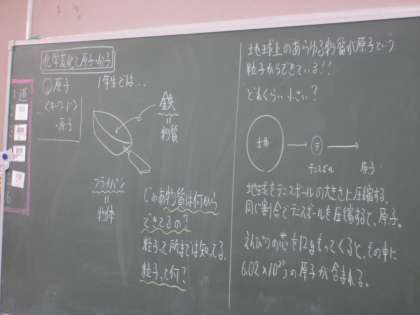 化学変化と原子・分子
①原子
<キーワード>
・原子
1年生では…
鉄
||
物質
フライパン
||
物体
じゃあ物質は何から
できてるの?
粒子って所までは知ってる。
粒子って何?
地球上のあらゆる物質が原子という
粒子からできている!!
どれくらい小さい?
地球
テ
テニスボール
原子
地球をテニスボールの大きさに圧縮する。
同じ割合でテニスボールを圧縮すると、原子。
えんぴつの芯を12gもってくると、その中に
6.02×10²³コの原子が含まれる。